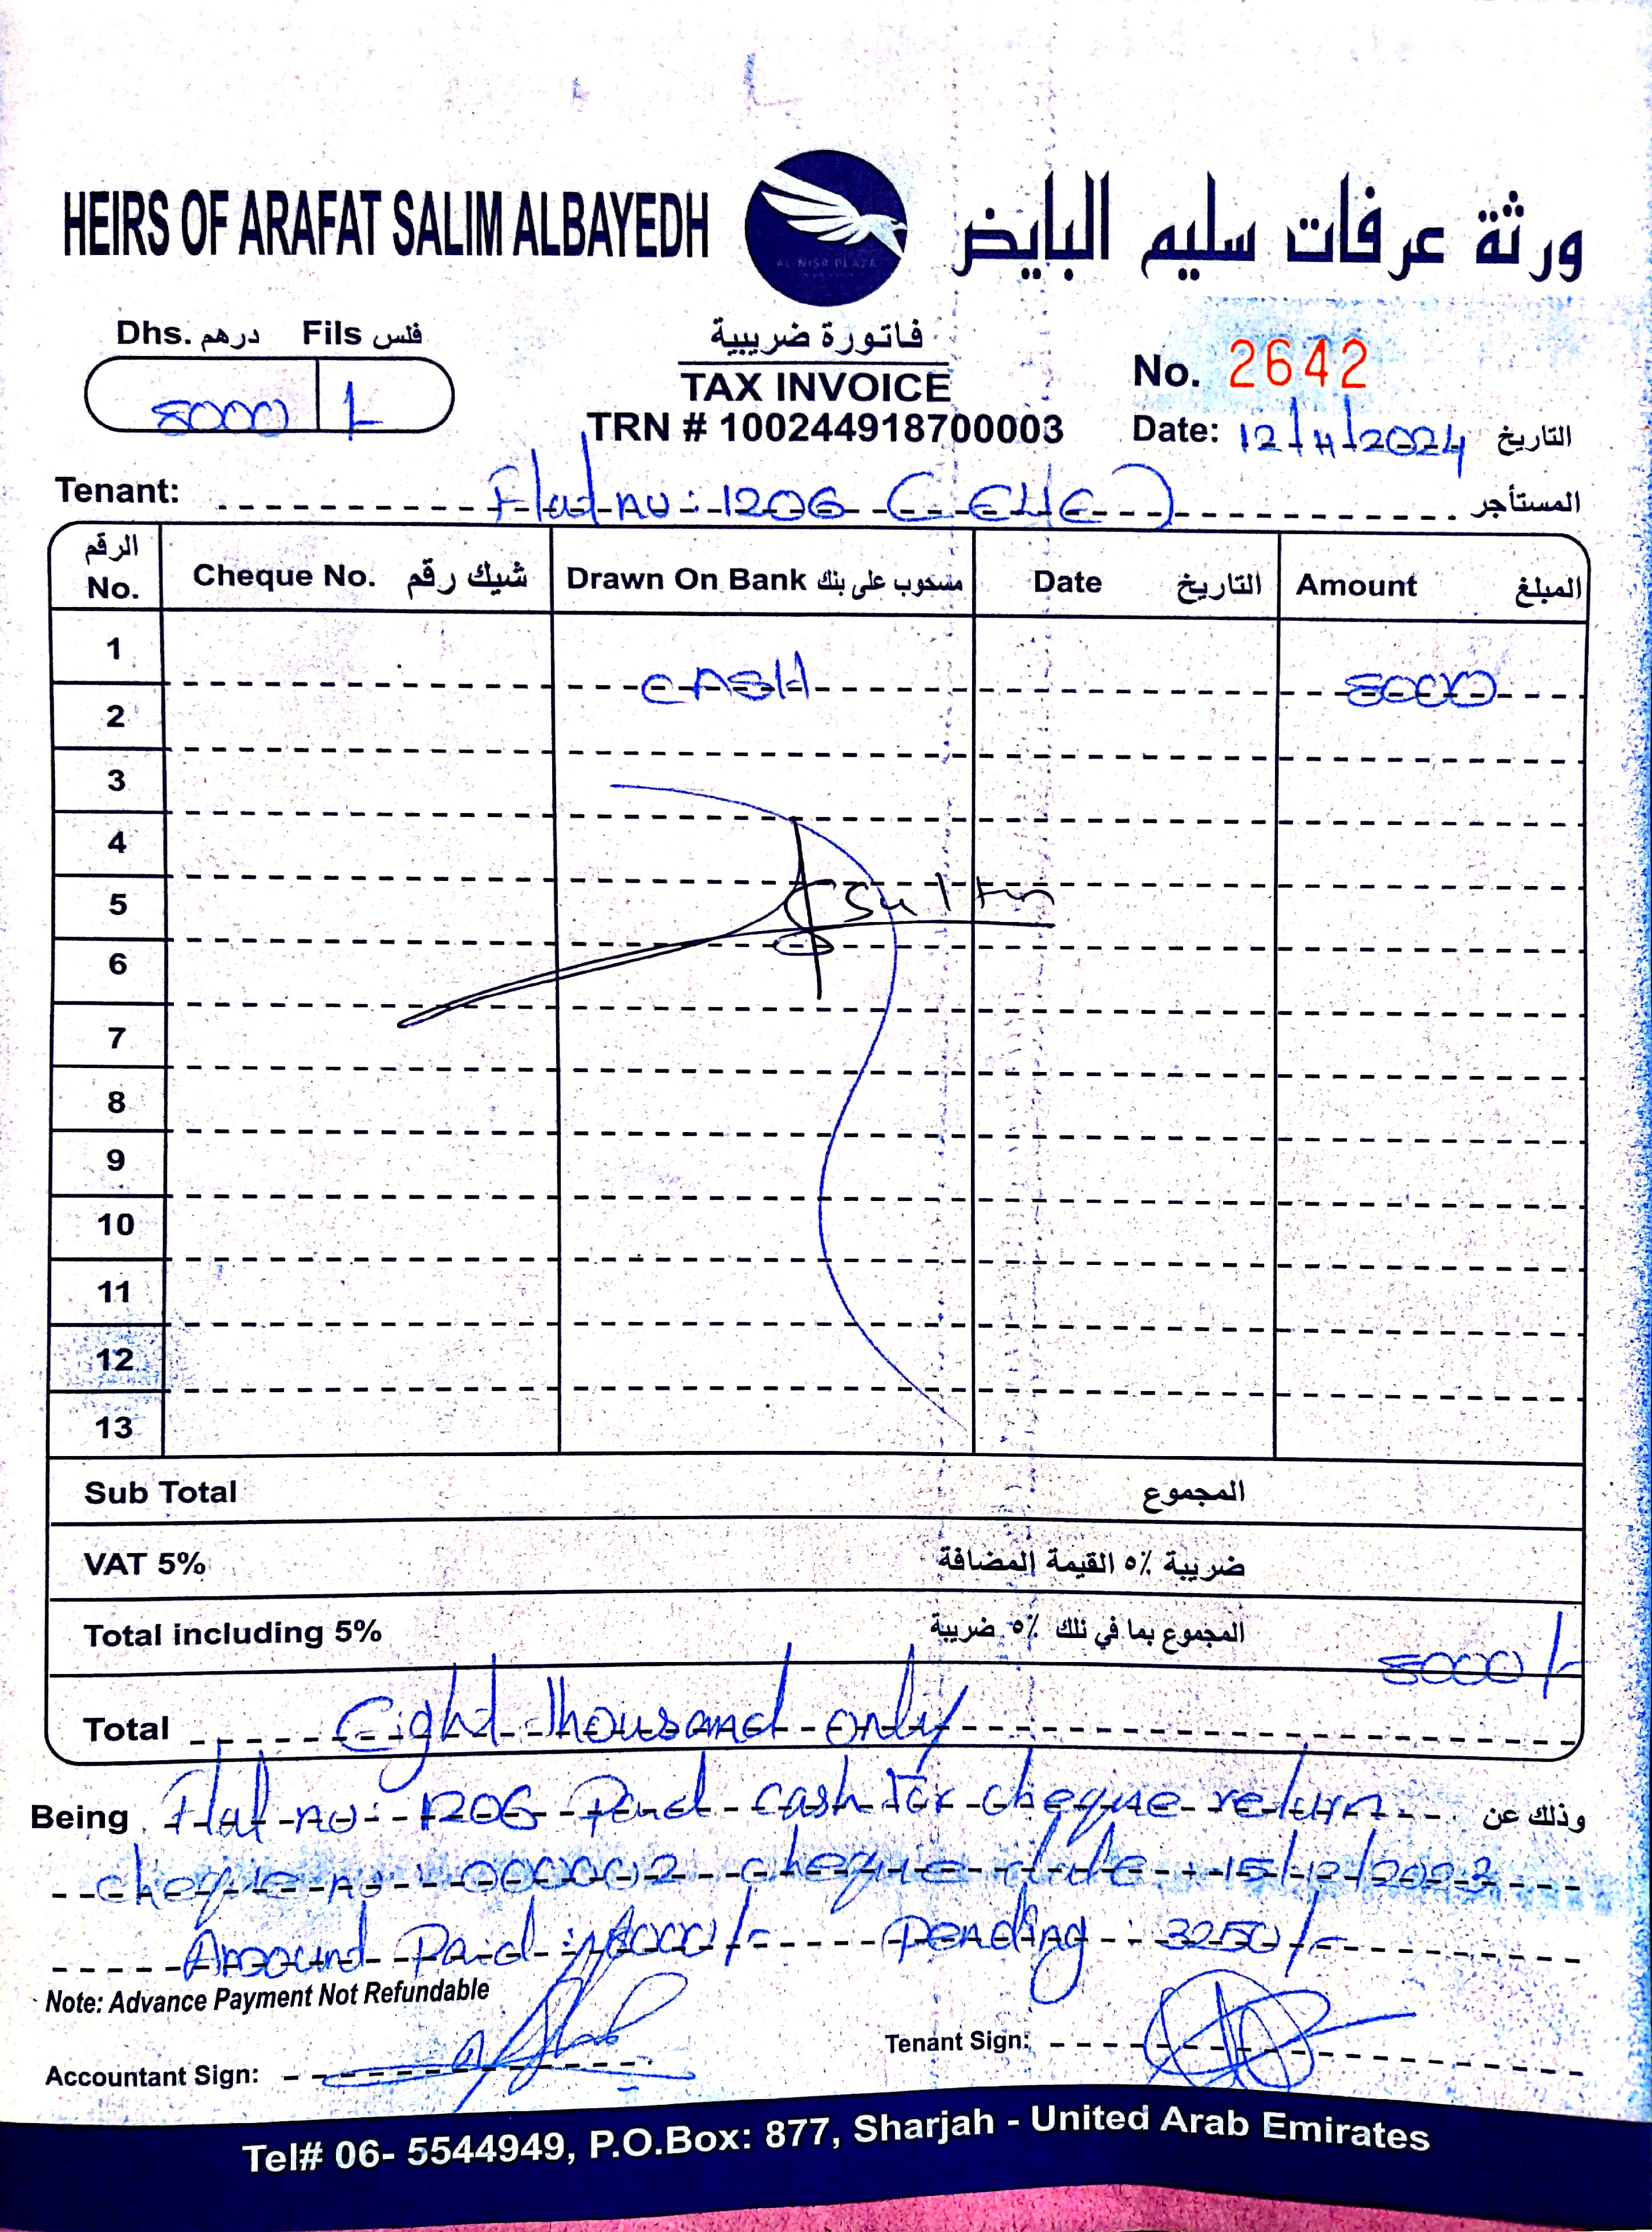 HEIRS OF ARAFAT SALIM ALBAYEDH
ورثة عرفات سليم البايض
AL NISR PLAZA
Dhs. درهم Fils فلس
8000 /-
فاتورة ضريبية
TAX INVOICE
TRN # 100244918700003
No. 2642
Date: 12/11/2024 التاريخ
Tenant: Flat no: 1206 المستأجر
الرقم No. Cheque No. شيك رقم Drawn On Bank مسحوب على بنك Date التاريخ Amount المبلغ
1 CASH 8000
2
3
4
5 Sultn
6
7
8
9
10
11
12
13
Sub Total المجموع
VAT 5% ضريبة ٥٪ القيمة المضافة
Total including 5% المجموع بما في ذلك ٥٪ ضريبة 8000/-
Total Eight thousand only
Being Flat no: 1206 Paid cash for cheque return وذلك عن
cheque no: 000002 cheque date: 15/12/2023
Amound Paid: 8000/- pending: 3250/-
Note: Advance Payment Not Refundable
Accountant Sign:
Tenant Sign:
Tel# 06- 5544949, P.O.Box: 877, Sharjah - United Arab Emirates